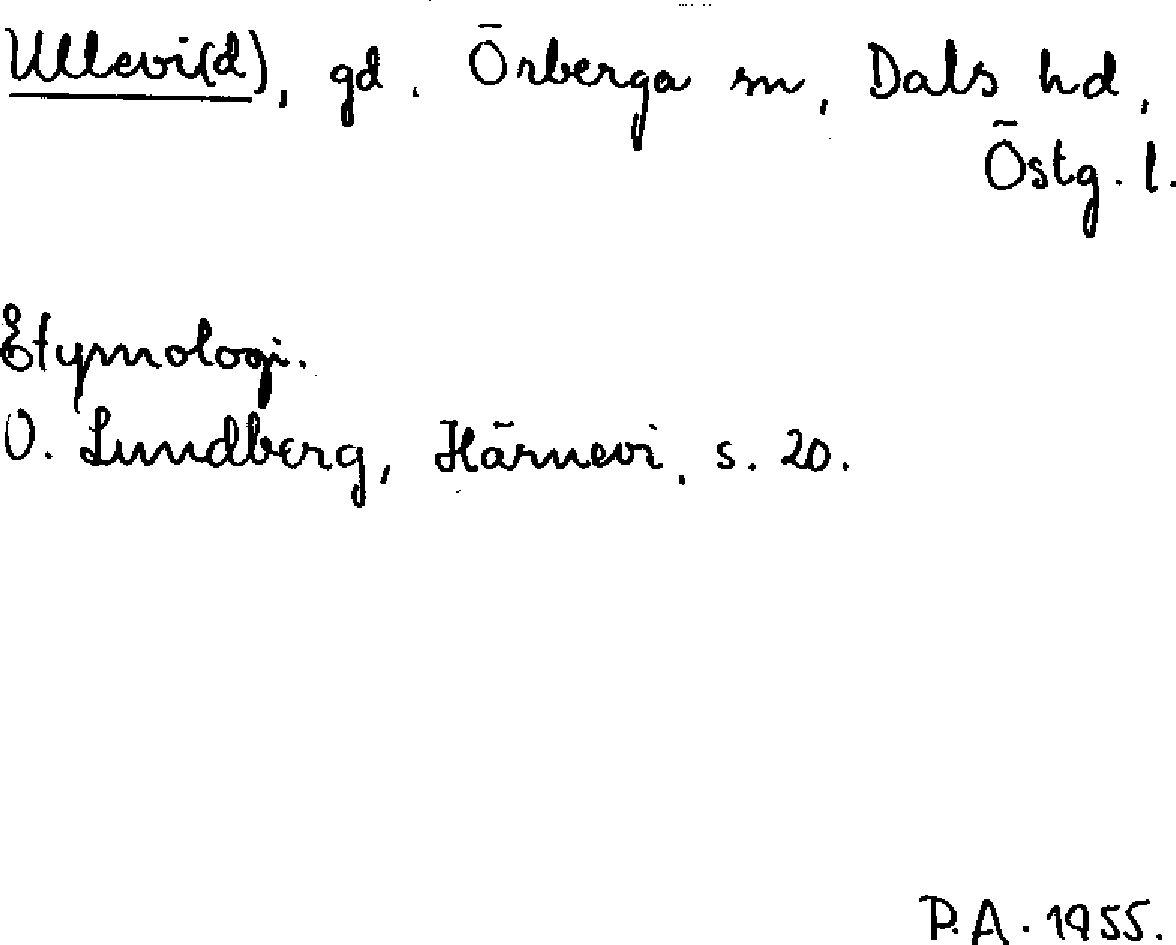 Ullevi(d), gd. Örberga sn, Dals hd,
Östg. l.
Etymologi.
O. Lundberg, Härnevi, s. 20.
P.A. 1955.